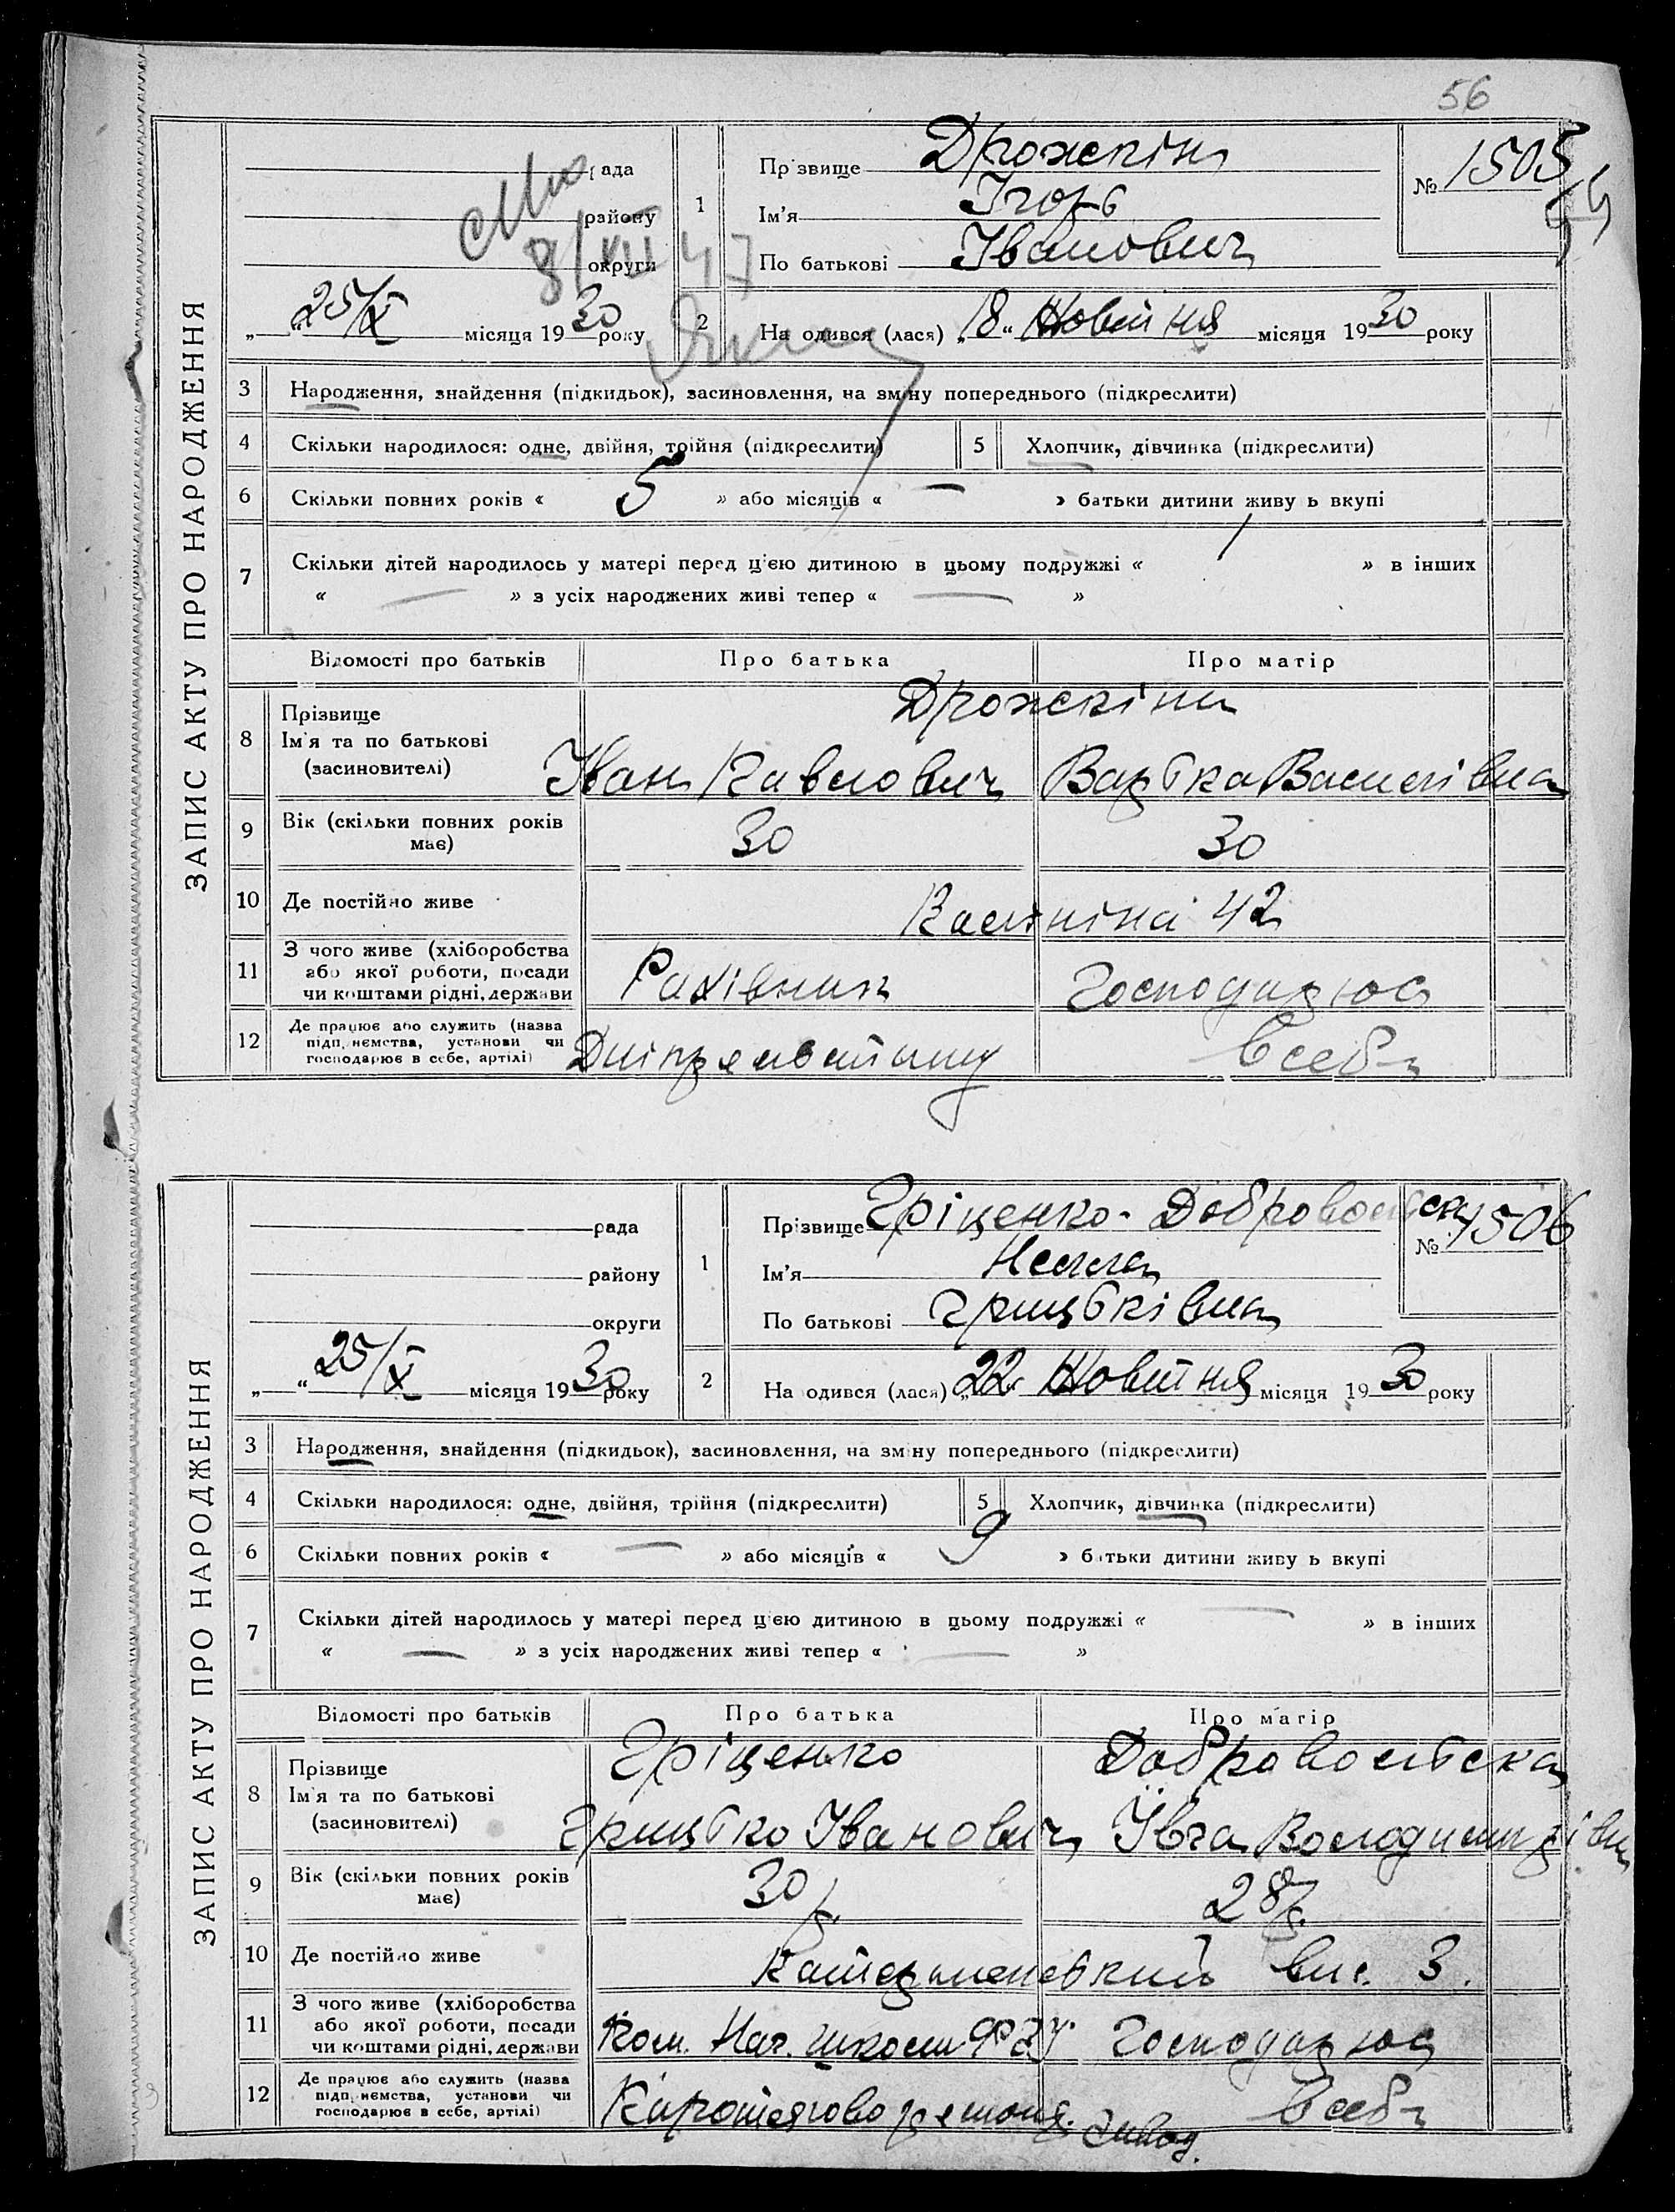 56
ЗАПИС АКТУ ПРО НАРОДЖЕННЯ
рада
району
округи
8/XII 47
„ “ 25/X місяця 1930 року
1
Прізвище Дрожкін
Ім'я Ігорь
По батькові Іванович
№ 1505
2
На одився (лася) „18“ Жовтня місяця 1930 року
3 Народження, знайдення (підкидьок), засиновлення, на зміну попереднього (підкреслити)
4 Скільки народилося: одне, двійня, трійня (підкреслити) 5 Хлопчик, дівчинка (підкреслити)
6 Скільки повних років « 5 » або місяців « — » батьки дитини живу ь вкупі
7 Скільки дітей народилось у матері перед цією дитиною в цьому подружжі « 1 » в інших
« — » з усіх народжених живі тепер « — »
Відомості про батьків Про батька Про матір
8 Прізвище
Ім'я та по батькові
(засиновителі)
Дрожкіни
Іван Павлович Варька Василівна
9 Вік (скільки повних років має) 30 30
10 Де постійно живе Калініна 42
11 З чого живе (хліборобства
або якої роботи, посади
чи коштами рідні, держави
Рахівник Господарює
12 Де працює або служить (назва
підп, нємства, установи чи
господарює в себе, артілі)
В себе
ЗАПИС АКТУ ПРО НАРОДЖЕННЯ
рада
району
округи
„ “ 25/X місяця 1930 року
1
Прізвище Гріценко-Добровольска
Ім'я Нелла
По батькові Грицьківна
№ 1506
2
На одився (лася) „22“ Жовтня місяця 1930 року
3 Народження, знайдення (підкидьок), засиновлення, на зміну попереднього (підкреслити)
4 Скільки народилося: одне, двійня, трійня (підкреслити) 5 Хлопчик, дівчинка (підкреслити)
6 Скільки повних років « — » або місяців « 9 » батьки дитини живу ь вкупі
7 Скільки дітей народилось у матері перед цією дитиною в цьому подружжі « — » в інших
« — » з усіх народжених живі тепер « — »
Відомості про батьків Про батька Про матір
8 Прізвище
Ім'я та по батькові
(засиновителі)
Гріценко Добровольска
Грицько Іванович Ївга Володимирівна
9 Вік (скільки повних років має) 30 р. 28 р.
10 Де постійно живе вис. 3.
11 З чого живе (хліборобства
або якої роботи, посади
чи коштами рідні, держави
Пом. Нач. школи ФЗУ Господарює
12 Де працює або служить (назва
підп, нємства, установи чи
господарює в себе, артілі)
Паротягово ремонт. Завод. В себе